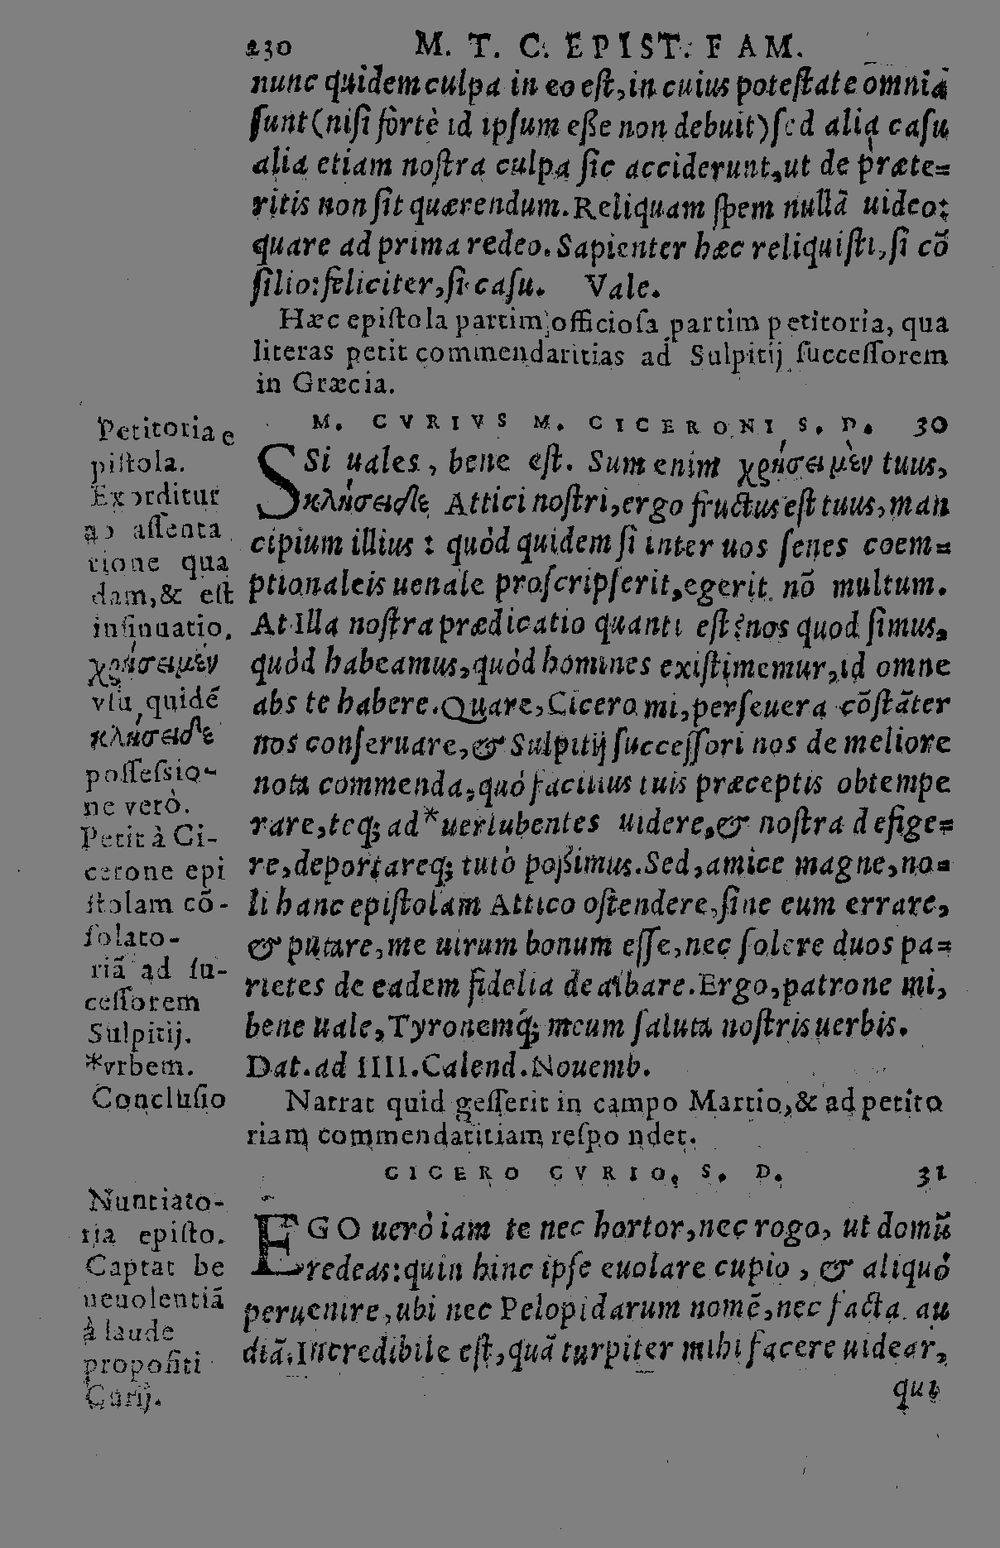 230 M. T. C. EPIST. FAM.
nunc quidem culpa in eo est, in cuius potestate omnia
sunt (nisi fortè id ipsum esse non debuit) sed alia casu
alia etiam nostra culpa sic acciderunt, ut de præte=
ritis non sit quærendum. Reliquam spem nullā uideo:
quare ad prima redeo. Sapienter hæc reliquisti, si cō
silio: feliciter, si casu. Vale.
Hæc epistola partim officiosa partim petitoria, qua
literas petit commendatitias ad Sulpitij successorem
in Græcia.
M. CVRIVS M. CICERONI S. D. 30
SSi uales, bene est. Sum enim χρήσει μὲν tuus,
κλήσει δὲ Attici nostri, ergo fructus est tuus, man
cipium illius: quòd quidem si inter uos senes coem=
ptionaleis uenale proscripserit, egerit nō multum.
At Illa nostra prædicatio quanti est? nos quod simus,
quòd habeamus, quòd homines existimemur, id omne
abs te habere. Quare, Cicero mi, perseuera cōstāter
nos conseruare, & Sulpitij successori nos de meliore
nota commenda, quó facilius tuis præceptis obtempe
rare, teq; ad *ueriubentes uidere, & nostra defige=
re, deportareq; tutò possimus. Sed, amice magne, no=
li hanc epistolam Attico ostendere, sine eum errare,
& putare, me uirum bonum esse, nec solere duos pa=
rietes de eadem fidelia dealbare. Ergo, patrone mi,
bene uale, Tyronemq́; meum saluta nostris uerbis.
Dat. ad IIII. Calend. Nouemb.
Narrat quid gesserit in campo Martio, & ad petito
riam commendatitiam respondet.
CICERO CVRIO, S. D. 31
EGO uerò iam te nec hortor, nec rogo, ut domū
redeas: quin hinc ipse euolare cupio, & aliquó
peruenire, ubi nec Pelopidarum nomē, nec facta au
diā. Incredibile est, quā turpiter mihi facere uidear,
qui
Petitoria e
pistola.
Exorditur
ab assenta
tione qua
dam, & est
insinuatio.
χρήσει μὲν
vsu quidē
κλήσει δὲ
possessio-
ne verò.
Petit à Ci-
cerone epi
stolam cō-
solato-
riā ad su-
cessorem
Sulpitij.
*vrbem.
Conclusio
Nuntiato-
ria episto.
Captat be
neuolentiā
à laude
propositi
Curij.